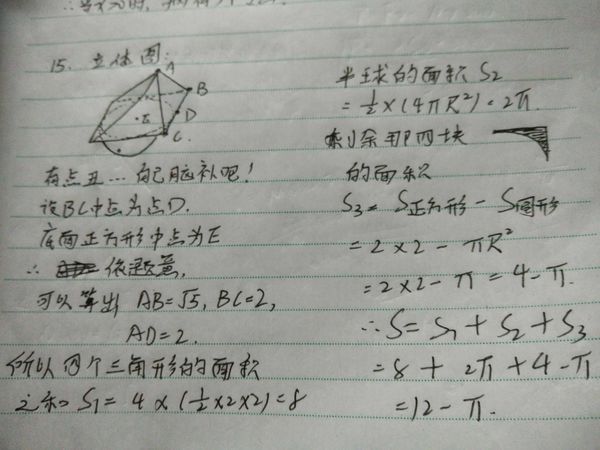 15. 立体图:
A
B
D
E
C
有点丑… 自己脑补吧!
设BC中点为点D.
底面正方形中点为E
∴ 依题意,
可以算出 AB=√5, BC=2,
AD=2.
所以四个三角形的面积
之和 S₁ = 4 × (½×2×2) = 8
半球的面积 S₂
= ½×(4πR²) = 2π.
剩余那四块
的面积
S₃ = S正方形 - S圆形
= 2×2 - πR²
= 2×2 - π = 4-π.
∴ S = S₁ + S₂ + S₃
= 8 + 2π + 4 - π
= 12 - π.